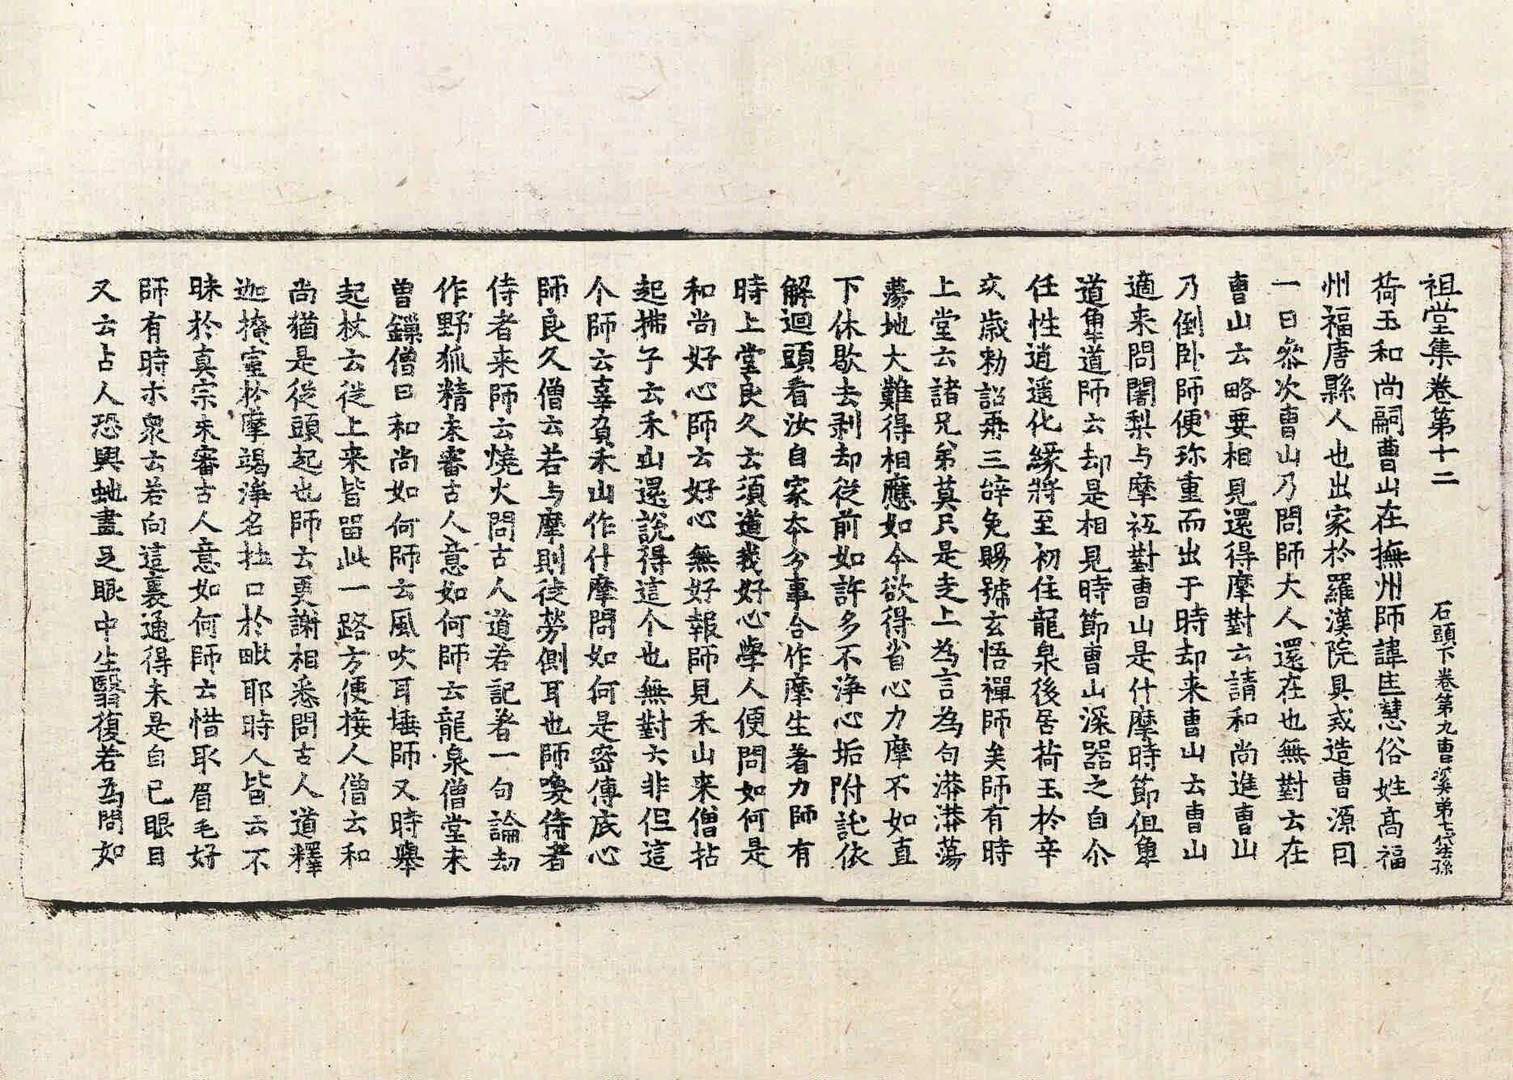 祖堂集卷第十二　石頭下卷第九曹溪第七代法孫
荷玉和尚嗣曹山在撫州師諱匡慧俗姓高福
州福唐縣人也出家於羅漢院具戒造曹源曰
一日叅次曹山乃問師大人還在也無對云在
曹山云略要相見還得摩對云請和尚進曹山
乃倒卧師便珎重而出于時却来曹山云曹山
適来問闍梨与摩祗對曹山是什摩時節伹卑
道卑道師云却是相見時節曹山深器之自尒
任性逍遥化緣將至初住龍泉後居荷玉於辛
亥歳勑詔再三辞免賜號玄悟禪師矣師有時
上堂云諸兄弟莫只是走上為言為句漭漭蕩
蕩地大難得相應如今欲得省心力摩不如直
下休歇去剥却從前如許多不淨心垢附託依
解迴頭看汝自家本分事合作摩生着力師有
時上堂良久云須道我好心學人便問如何是
和尚好心師云好心無好報師見禾山来僧拈
起拂子云禾山還說得這个也無對云非但這
个師云辜負禾山作什摩問如何是密傳底心
師良久僧云若与摩則徒勞側耳也師喚侍者
侍者来師云燒火問古人道若記著一句論劫
作野狐精未審古人意如何師云龍泉僧堂未
曽鏁僧曰和尚如何師云風吹耳埵師又時舉
起杖云從上来皆留此一路方便接人僧云和
尚猶是從頭起也師云更謝相悉問古人道釋
迦掩室於摩竭淨名杜口於毗耶時人皆云不
昧於真宗未審古人意如何師云惜取眉毛好
師有時示衆云若向這裏通得未是自己眼目
又云占人恐與虵畫足眼中生翳復若為問如